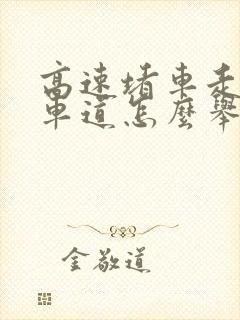 高速堵車走
車道怎麼舉
金敬道